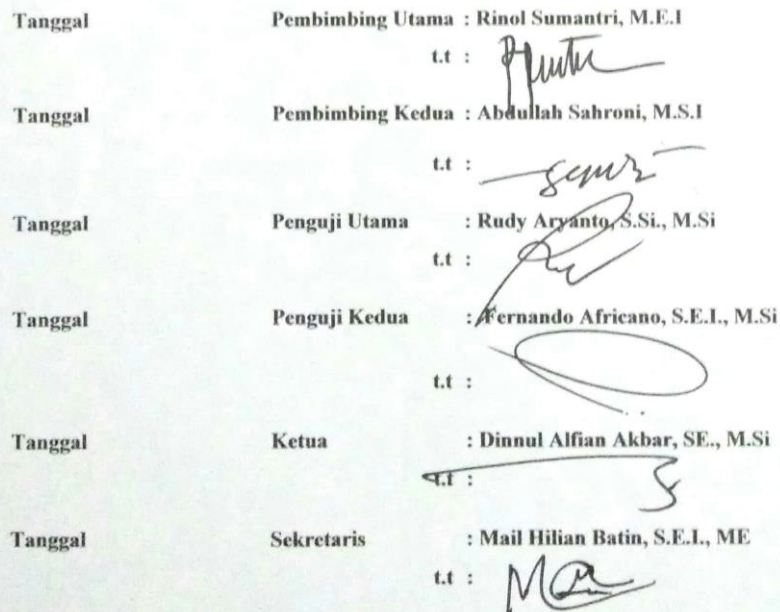 Tanggal Pembimbing Utama : Rinol Sumantri, M.E.I
t.t :
Tanggal Pembimbing Kedua : Abdullah Sahroni, M.S.I
t.t :
Tanggal Penguji Utama : Rudy Aryanto, S.Si., M.Si
t.t :
Tanggal Penguji Kedua : Fernando Africano, S.E.I., M.Si
t.t :
Tanggal Ketua : Dinnul Alfian Akbar, SE., M.Si
t.t :
Tanggal Sekretaris : Mail Hilian Batin, S.E.I., ME
t.t :